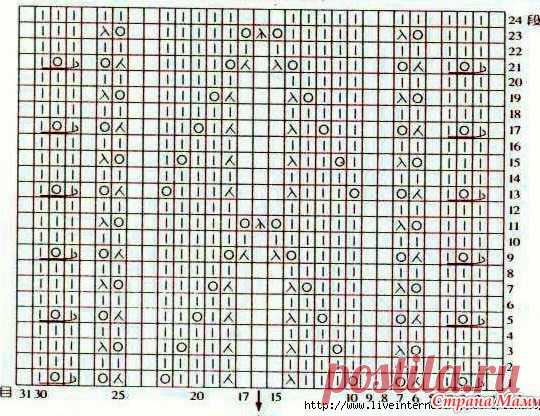 24 段
23
22
21
20
19
18
17
16
15
14
13
12
11
10
9
8
7
6
5
4
3
2
目 31 30 25 20 17 15 10 9 8 7 6
postila.ru
Страна Мам